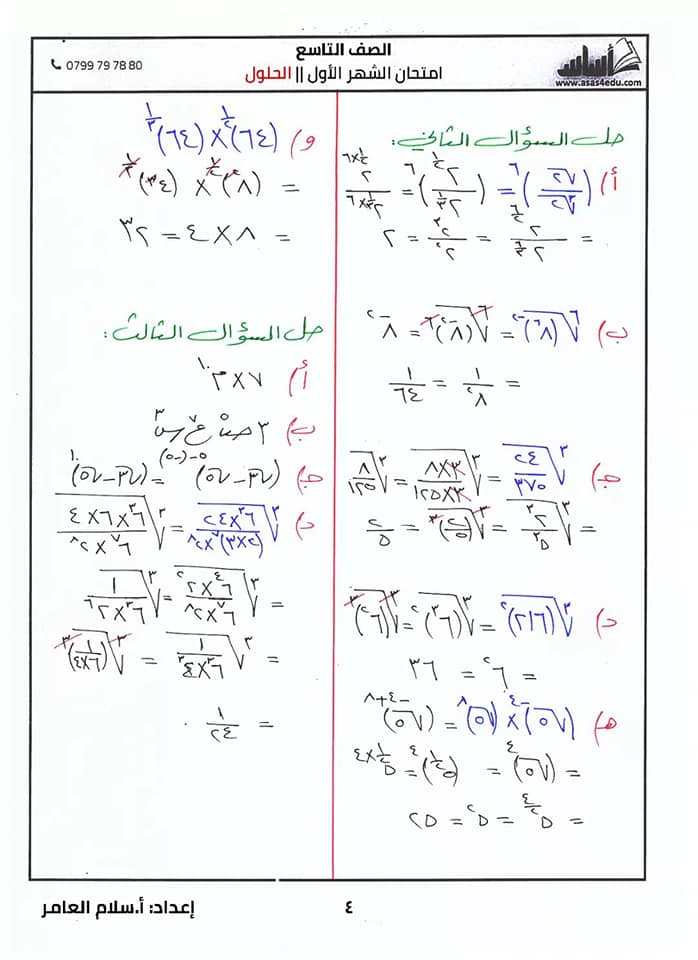 الصف التاسع
امتحان الشهر الأول || الحلول
0799 79 78 80
أساس
www.asas4edu.com
حل السؤال الثاني:
أ) (√٢ / ∛٢)^٦ = (٢^(١/٢) / ٢^(١/٣))^٦ = ٢^(١/٢×٦) / ٢^(١/٣×٦)
= ٢^(٦/٢) / ٢^(٦/٣) = ٢^٣ / ٢^٢ = ٢
ب) ⁶√(٨^٦)^-٢ = ⁶√(٨^-٢)^٦ = ٨^-٢
= ١/٨^٢ = ١/٦٤
جـ) ∛(٢٤/٣٧٥) = ∛(٨×٣ / ١٢٥×٣) = ∛(٨/١٢٥)
= ∛(٢^٣/٥^٣) = ∛(٢/٥)^٣ = ٢/٥
د) ∛(٢١٦)^٢ = ∛(٦^٣)^٢ = ∛(٦^٢)^٣
= ٦^٢ = ٣٦
هـ) (√٥)^-٤ × (√٥)^٨ = (√٥)^-٤+٨
= (√٥)^٤ = (٥^(١/٢))^٤ = ٥^(١/٢×٤)
= ٥^(٤/٢) = ٥^٢ = ٢٥
و) (٦٤)^(١/٢) × (٦٤)^(١/٣)
= (٨^٢)^(١/٢) × (٤^٣)^(١/٣)
= ٨ × ٤ = ٣٢
حل السؤال الثالث:
أ) ٧ × ٣^١٠
ب) ٣ ص^٥ ع^٧ س^٣
جـ) (√٣ - √٥)^٥-(-٥) = (√٣ - √٥)^١٠
د) ∛(٦^٣×٢٤ / (٢×٣)^٧×٢^٨) = ∛(٦^٣×٦×٤ / ٦^٧×٢^٨)
= ∛(٦^٤×٢^٢ / ٦^٧×٢^٨) = ∛(١ / ٦^٣×٢^٦)
= ∛(١ / ٦^٣×٤^٣) = ∛(١ / ٦×٤)^٣
= ١/٢٤ .
٤
إعداد: أ.سلام العامر